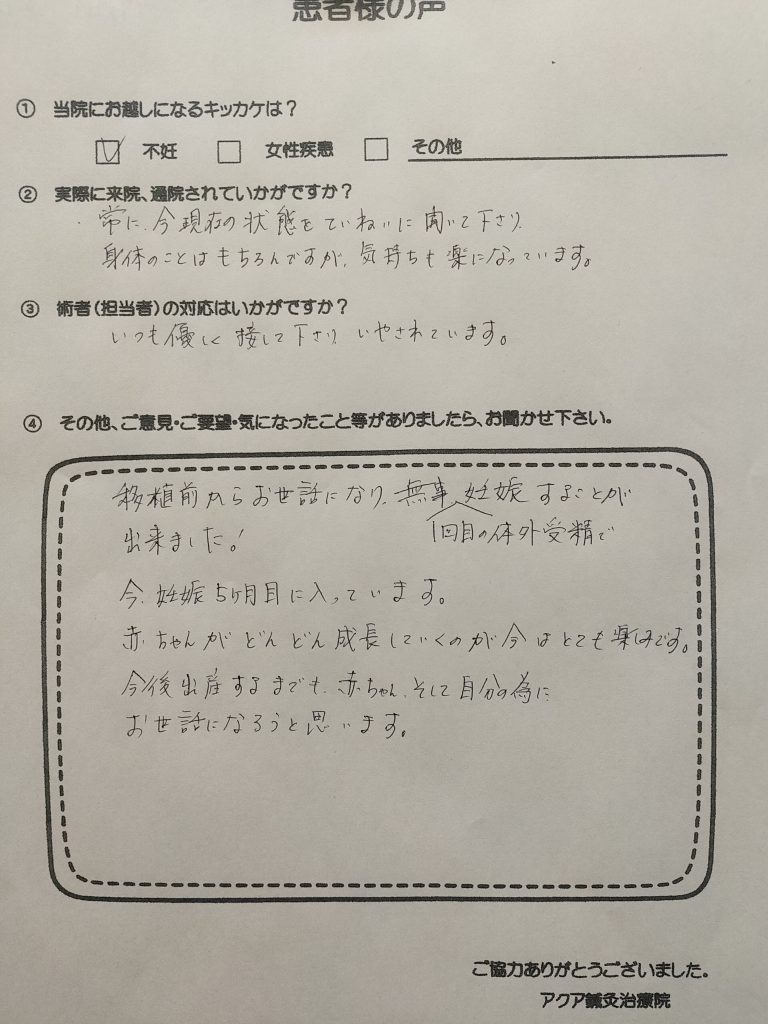 患者様の声
① 当院にお越しになるキッカケは？
不妊 女性疾患 その他
② 実際に来院、通院されていかがですか？
常に、今現在の状態をていねいに聞いて下さり、
身体のことはもちろんですが、気持ちも楽になっています。
③ 術者（担当者）の対応はいかがですか？
いつも優しく接して下さり、いやされています。
④ その他、ご意見・ご要望・気になったこと等がありましたら、お聞かせ下さい。
移植前からお世話になり、無事、妊娠することが
1回目の体外受精で
出来ました！
今、妊娠5ヶ月目に入っています。
赤ちゃんがどんどん成長していくのが今はとても楽しみです。
今後出産するまでも、赤ちゃん、そして自分の為に
お世話になろうと思います。
ご協力ありがとうございました。
アクア鍼灸治療院